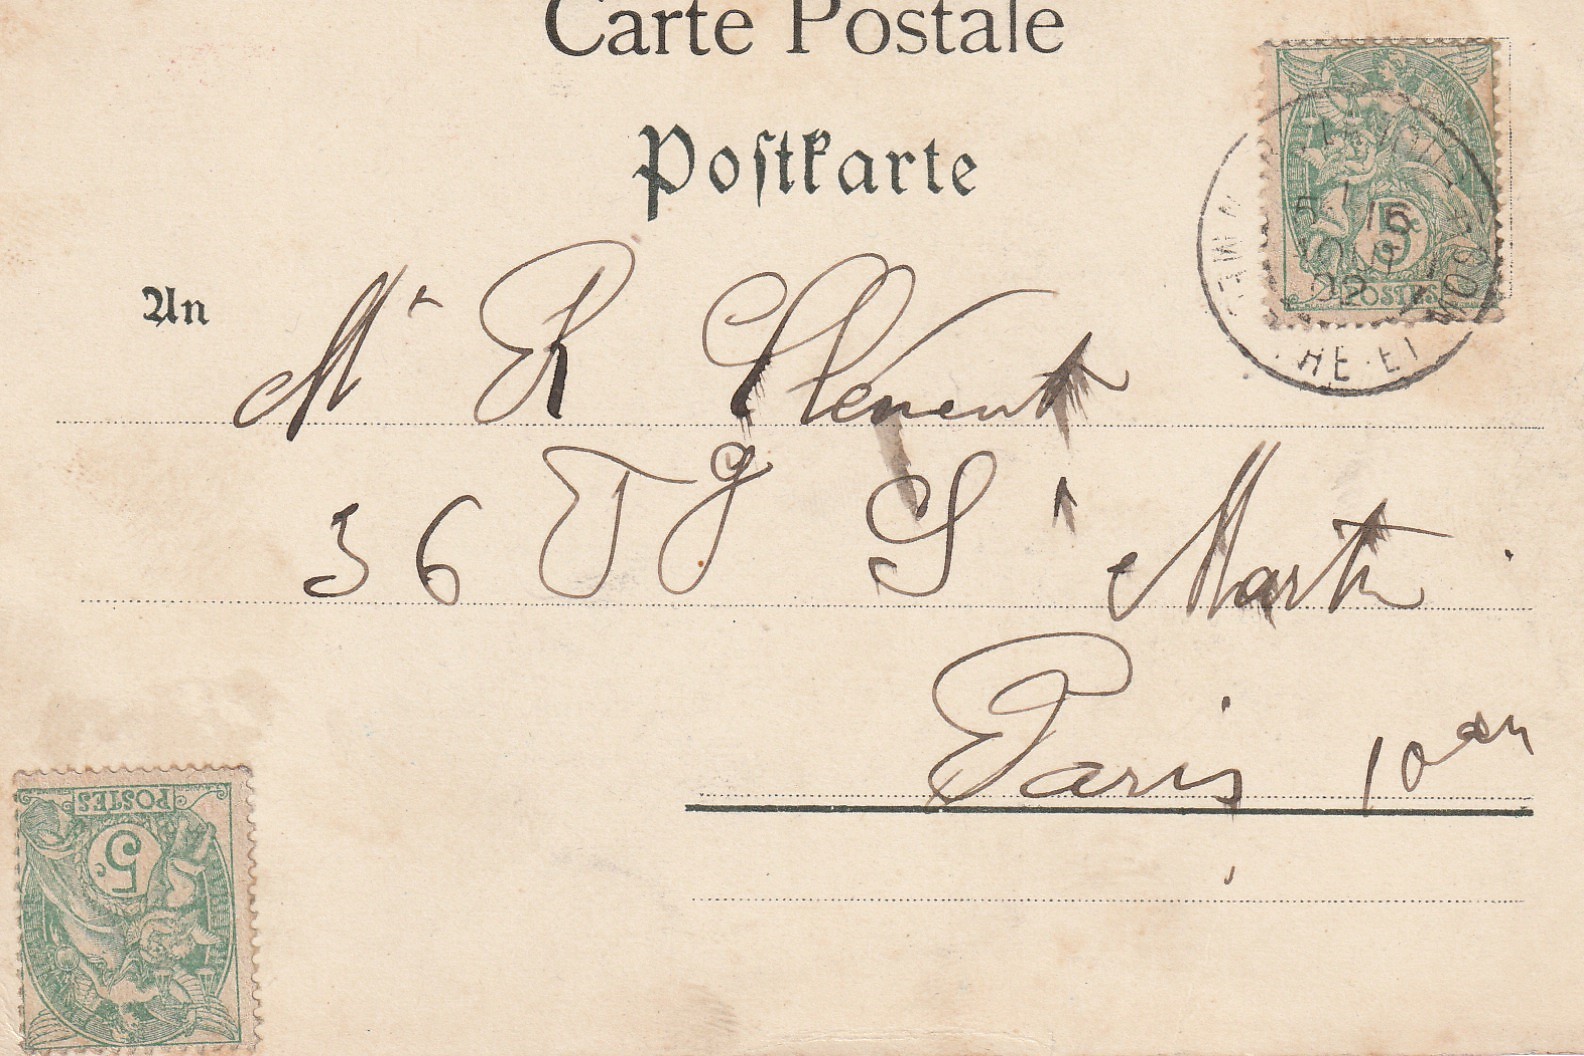 Carte Postale
Postkarte
An
Mr R Clément
36 Fg St Martin
Paris 10em
5c
POSTES
15
02
HE-ET-M
POSTES
5c